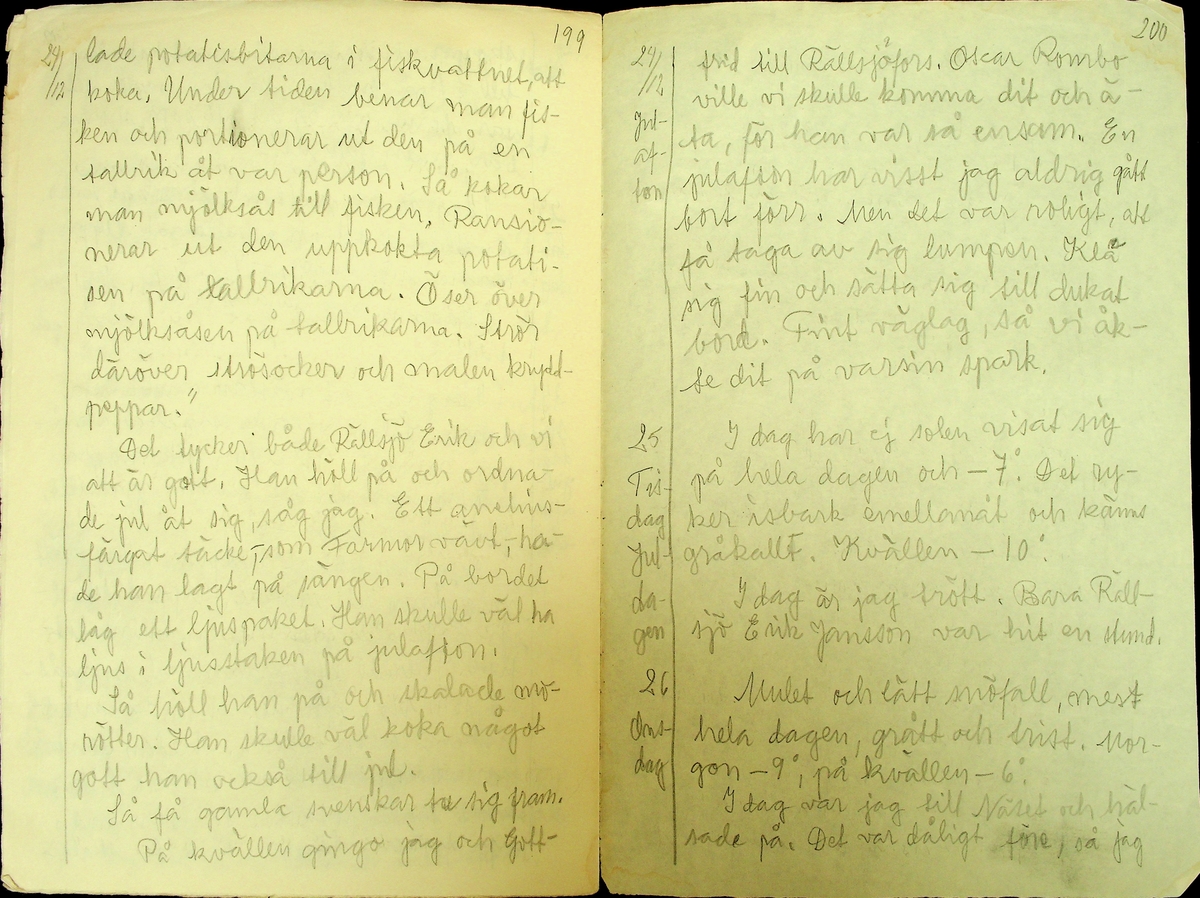 199
24/12
lade potatisbitarna i fiskvattnet, att
koka. Under tiden benar man fis-
ken och portionerar ut den på en
tallrik åt var person. Så kokar
man mjölksås till fisken. Ransio-
nerar ut den uppkokta potati-
sen på tallrikarna. Öser över
mjölksåsen på tallrikarna. Strör
däröver strösocker och malen krydd-
peppar."
Det tycker både Rällsjö Erik och vi
att är gott. Han höll på och ordna-
de jul åt sig, såg jag. Ett anelins-
färgat täcke, som Farmor vävt, ha-
de han lagt på sängen. På bordet
låg ett ljuspaket. Han skulle väl ha
ljus i ljusstaken på julafton.
Så höll han på och skalade mo-
rötter. Han skulle väl koka något
gott han också till jul.
Så få gamla svenskar te sig fram.
På kvällen gingo jag och Gott-
200
24/12
Jul-
af-
ton
frid till Rällsjöfors. Oscar Rombo
ville vi skulle komma dit och ä-
ta, för han var så ensam. En
julafton har visst jag aldrig gått
bort förr. Men det var roligt, att
få taga av sig lumpen. Klä
sig fin och sätta sig till dukat
bord. Fint väglag, så vi åk-
te dit på varsin spark.
25
Tis-
dag
Jul-
da-
gen
I dag har ej solen visat sig
på hela dagen och -7°. Det ry-
ker isbark emellanåt och känns
gråkallt. Kvällen -10°.
I dag är jag trött. Bara Räll-
sjö Erik Jansson var hit en stund.
26
Ons-
dag
Mulet och lätt snöfall, mest
hela dagen, grått och trist. Mor-
gon -9°, på kvällen -6°.
I dag var jag till Näset och häl-
sade på. Det var dåligt före, så jag